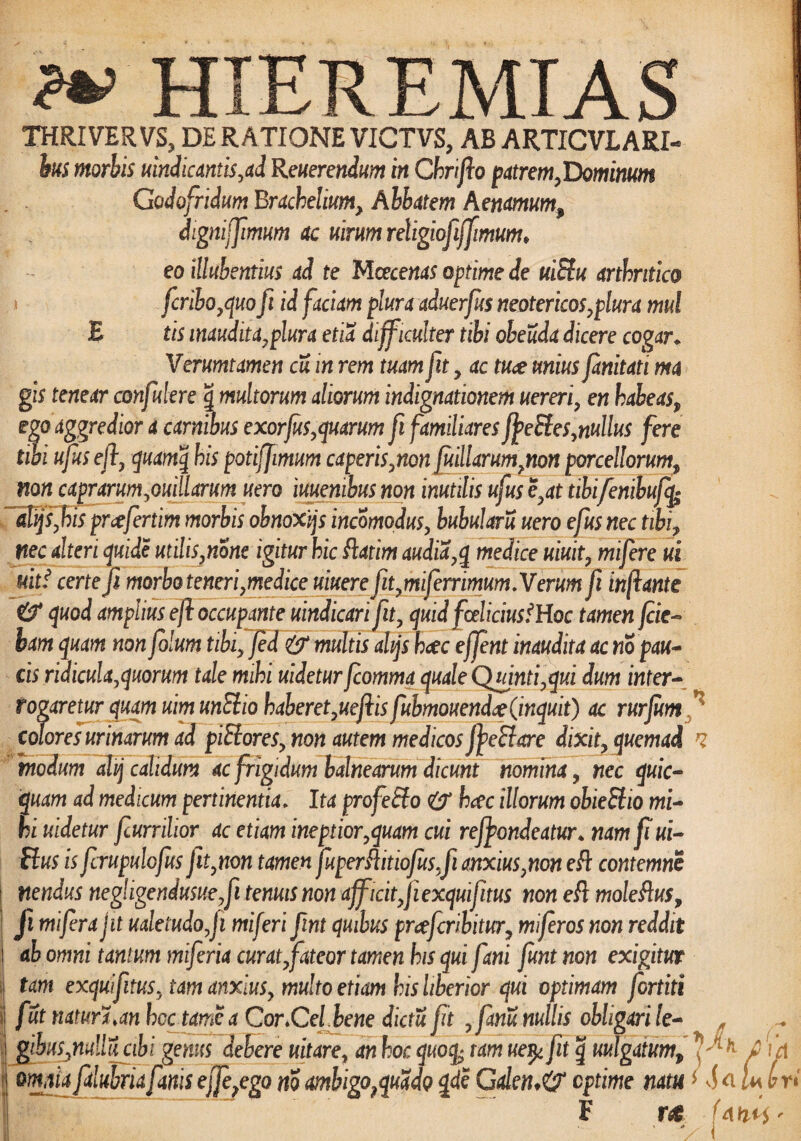 ❧ HIEREMIAS
THRIVERVS, DE RATIONE VICTVS, AB ARTICVLARI-
bus morbis uindicantis,ad Reuerendum in Christo patrem,Dominum
Godofridum Brachelium, Abbatem Aenamum,
dignissimum ac uirum religiosissimum.
eo illubentius ad te Mœcenas optime de uictu arthritico
scribo,quo si id faciam plura aduersus neotericos,plura mul
E tis inaudita,plura etiã difficulter tibi obeũda dicere cogar.
Verumtamen cũ in rem tuam sit, ac tuæ unius sanitati ma
gis tenear consulere q̃ multorum aliorum indignationem uereri, en habeas,
ego aggredior a carnibus exorsus,quarum si familiares spectes,nullus fere
tibi usus est, quamq̃ his potissimum caperis,non suillarum,non porcellorum,
non caprarum,ouillarum uero iuuenibus non inutilis usus ẽ,at tibi senibusq;
alijs,his præsertim morbis obnoxijs incõmodus, bubularũ uero esus nec tibi,
nec alteri quidẽ utilis,nõne igitur hic statim audiã,q̃ medice uiuit, misere ui
uit? certe si morbo teneri,medice uiuere sit,miserrimum.Verum si instante
& quod amplius est occupante uindicari sit, quid fœlicius?Hoc tamen scie-
bam quam non solum tibi, sed & multis alijs hæc essent inaudita ac nõ pau-
cis ridicula,quorum tale mihi uidetur scomma quale Quinti,qui dum inter-
rogaretur quam uim unctio haberet,uestis submouendæ(inquit) ac rursum
colores urinarum ad pictores, non autem medicos spectare dixit, quemad
modum alij calidum ac frigidum balnearum dicunt nomina, nec quic-
quam ad medicum pertinentia. Ita profecto & hæc illorum obiectio mi-
hi uidetur scurrilior ac etiam ineptior,quam cui respondeatur. nam si ui-
ctus is scrupulosus sit,non tamen superstitiosus,si anxius,non est contemnẽ
nendus negligendusue,si tenuis non afficit,si exquisitus non est molestus,
si misera sit ualetudo,si miseri sint quibus præscribitur, miseros non reddit
ab omni tantum miseria curat,fateor tamen his qui sani sunt non exigitur
tam exquisitus, tam anxius, multo etiam his liberior qui optimam sortiti
sũt naturã.an hoc tamẽ a Cor.Cel.bene dictũ sit ,sanũ nullis obligari le-
gibus,nullũ cibi genus debere uitare, an hoc quoq; tam uerũ sit q̃ uulgatum,
omnia salubria sanis esse,ego nõ ambigo,quãdo qdẽ Galen.& optime natu
F ræ
An
salubri
sanis